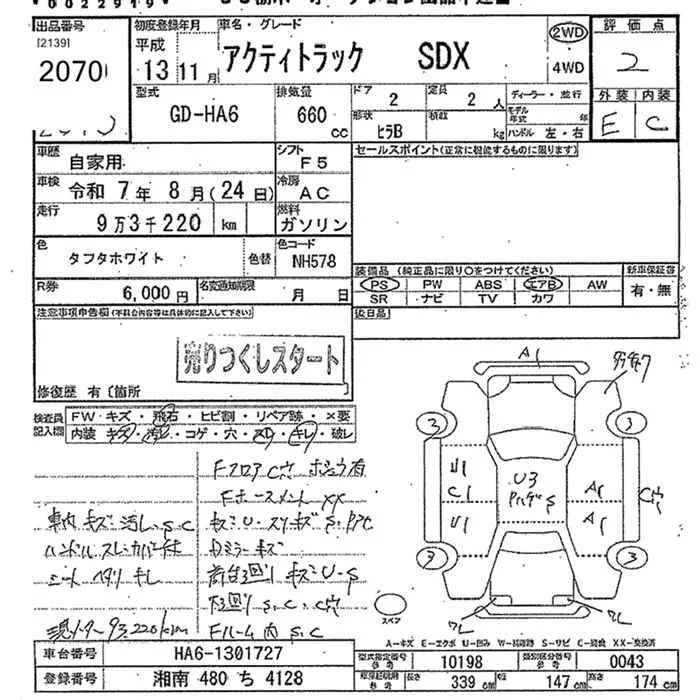 出品番号 初度登録年月 車名・グレード 2WD 評価点
[2139] 平成 アクティトラック SDX 2
2070 13 11月 4WD
型式 排気量 ドア 2 定員 2 人 ディーラー・並行 外装 内装
GD-HA6 660 cc 形状 ヒラB 積載 kg モデル年式 年 E C
ハンドル 左・右
車歴 自家用 シフト F5 セールスポイント(正常に機能するものに限ります)
車検 令和 7年 8月(24日) 冷房 AC
走行 9万3千220 km 燃料 ガソリン
色 タフタホワイト 色替 色コード NH578
装備品 (純正品に限り○をつけてください) 新車保証書
R券 6,000円 名変通知期限 月 日 PS PW ABS エアB AW 有・無
SR ナビ TV カワ
注意事項申告欄(不具合内容等は具体的に記入して下さい) 後日品
売りつくしスタート
修復歴 有〔箇所
検査員記入欄 FW・キズ・飛石・ヒビ割・リペア跡・×要
内装 キズ・汚レ・コゲ・穴・スレ・キレ・破レ
A1
3 3
U1 U3 A1
C1 A1
U1
3 3
FフロアC穴
車内キズ汚レ、S、C
シート ヘタリ キレ
現メーター93,220km
Fルーム内 S、C
スペア
A-キズ E-エクボ U-凹み W-補修跡 S-サビ C-腐食 XX-交換済
車台番号 HA6-1301727 型式指定番号 参考 10198 類別区分番号 参考 0043
登録番号 湘南 480 ち 4128 長さ 339 cm 幅 147 cm 高さ 174 cm